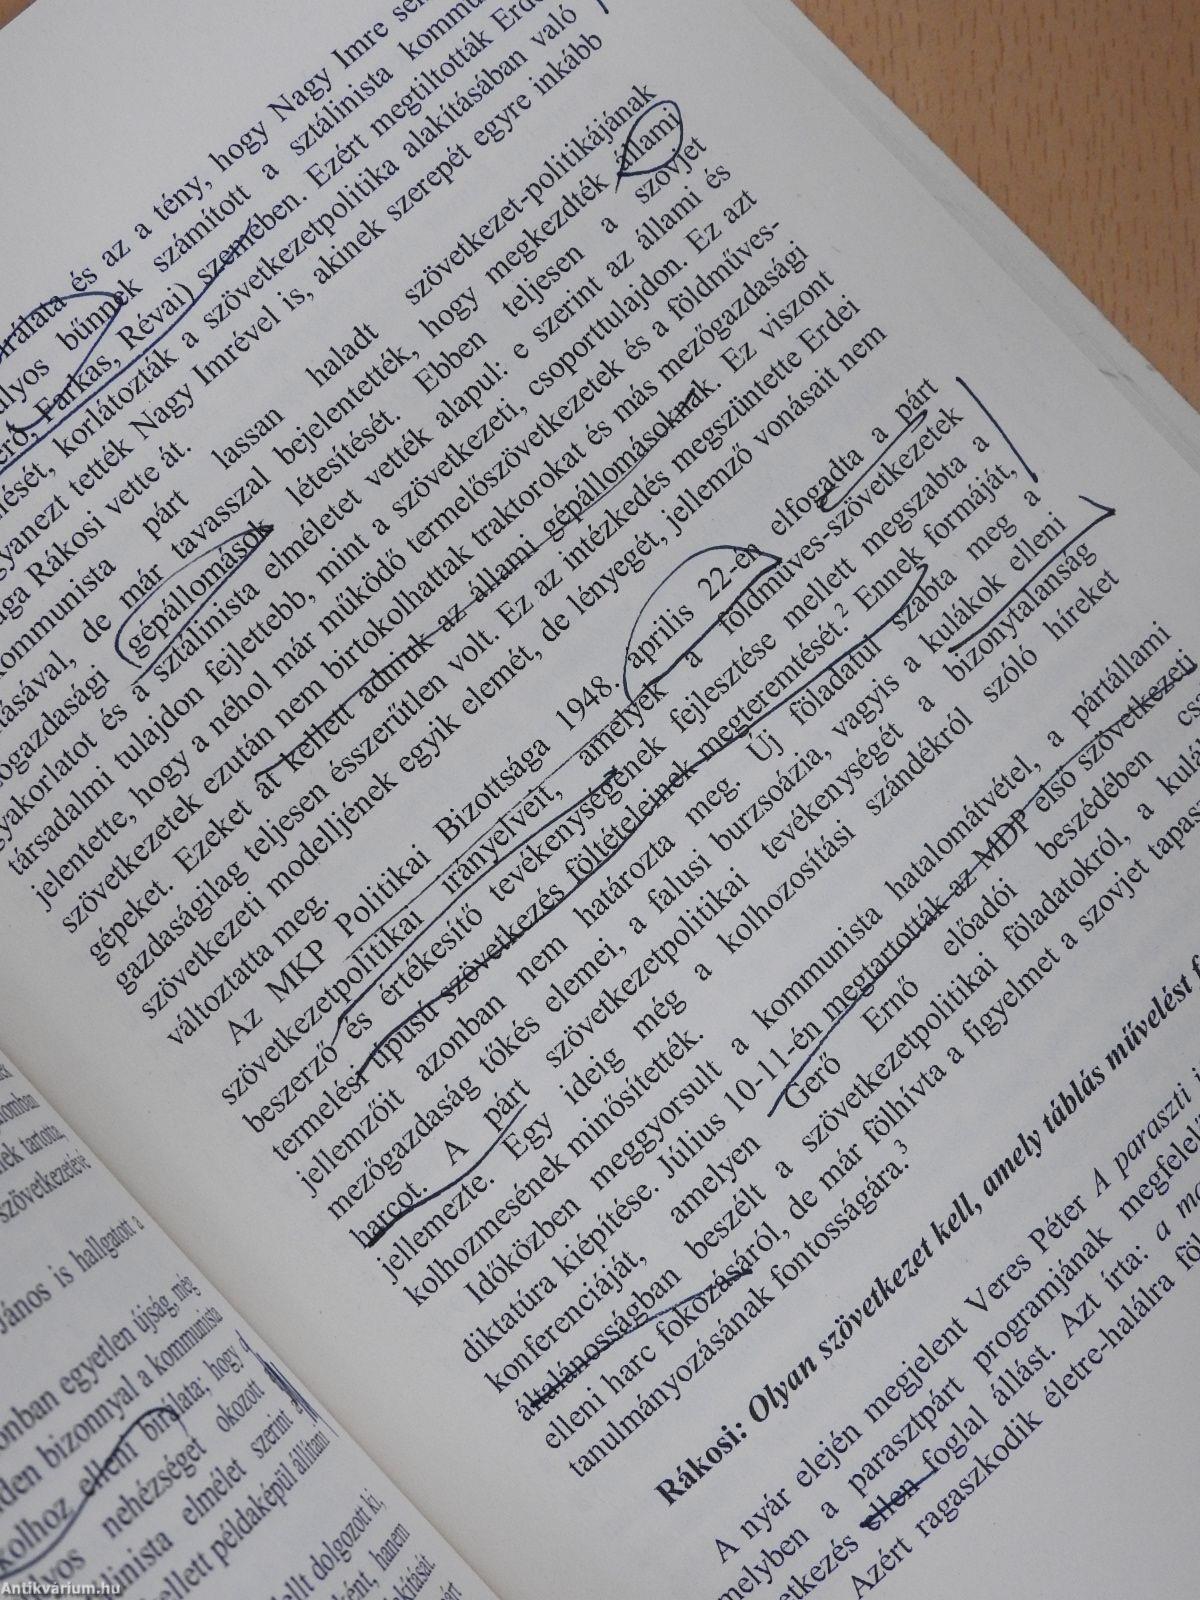 és az a tény, hogy Nagy Imre
súlyos bűnnek számított a sztálinista
Farkas, Révai) szemében. Ezért megtiltották
korlátozták a szövetkezetpolitika alakításában való
ugyanezt tették Nagy Imrével is, akinek szerepét egyre inkább
maga Rákosi vette át.
kommunista párt lassan haladt szövetkezet-politikájának
de már tavasszal bejelentették, hogy megkezdték állami
gépállomások létesítését. Ebben teljesen a szovjet
gyakorlatot és a sztálinista elméletet vették alapul: e szerint az állami és
társadalmi tulajdon fejlettebb, mint a szövetkezeti, csoporttulajdon. Ez azt
jelentette, hogy a néhol már működő termelőszövetkezetek és a földműves-
szövetkezetek ezután nem birtokolhattak traktorokat és más mezőgazdasági
gépeket. Ezeket át kellett adniuk az állami gépállomásoknak. Ez viszont
gazdaságilag teljesen ésszerűtlen volt. Ez az intézkedés megszüntette Erdei
szövetkezeti modelljének egyik elemét, de lényegét, jellemző vonásait nem
változtatta meg.
Az MKP Politikai Bizottsága 1948. április 22-én elfogadta a párt
szövetkezetpolitikai irányelveit, amelyek a földműves-szövetkezetek
beszerző és értékesítő tevékenységének fejlesztése mellett megszabta a
termelési típusú szövetkezés föltételeinek megteremtését.² Ennek formáját,
jellemzőit azonban nem határozta meg. Új föladatul szabta meg a
mezőgazdaság tőkés elemei, a falusi burzsoázia, vagyis a kulákok elleni
harcot. A párt szövetkezetpolitikai tevékenységét a bizonytalanság
jellemezte. Egy ideig még a kolhozosítási szándékról szóló híreket
kolhozmesének minősítették.
Időközben meggyorsult a kommunista hatalomátvétel, a pártállami
diktatúra kiépítése. Július 10-11-én megtartották az MDP első szövetkezeti
konferenciáját, amelyen Gerő Ernő előadói beszédében
általánosságban beszélt a szövetkezetpolitikai föladatokról, a
elleni harc fokozásáról, de már fölhívta a figyelmet a szovjet
tanulmányozásának fontosságára.³
Rákosi: Olyan szövetkezet kell, amely táblás művelést
A nyár elején megjelent Veres Péter A paraszti
a parasztpárt programjának
ellen foglal állást. Azt írta: a
Azért ragaszkodik életre-halálra
János is hallgatott a
egyetlen újság, még
bizonnyal a kommunista
kolhoz elleni bírálata; hogy a
nehézséget okozott
elmélet szerint a
példaképül állítani
dolgozott ki,
hanem
Antikvárium.hu